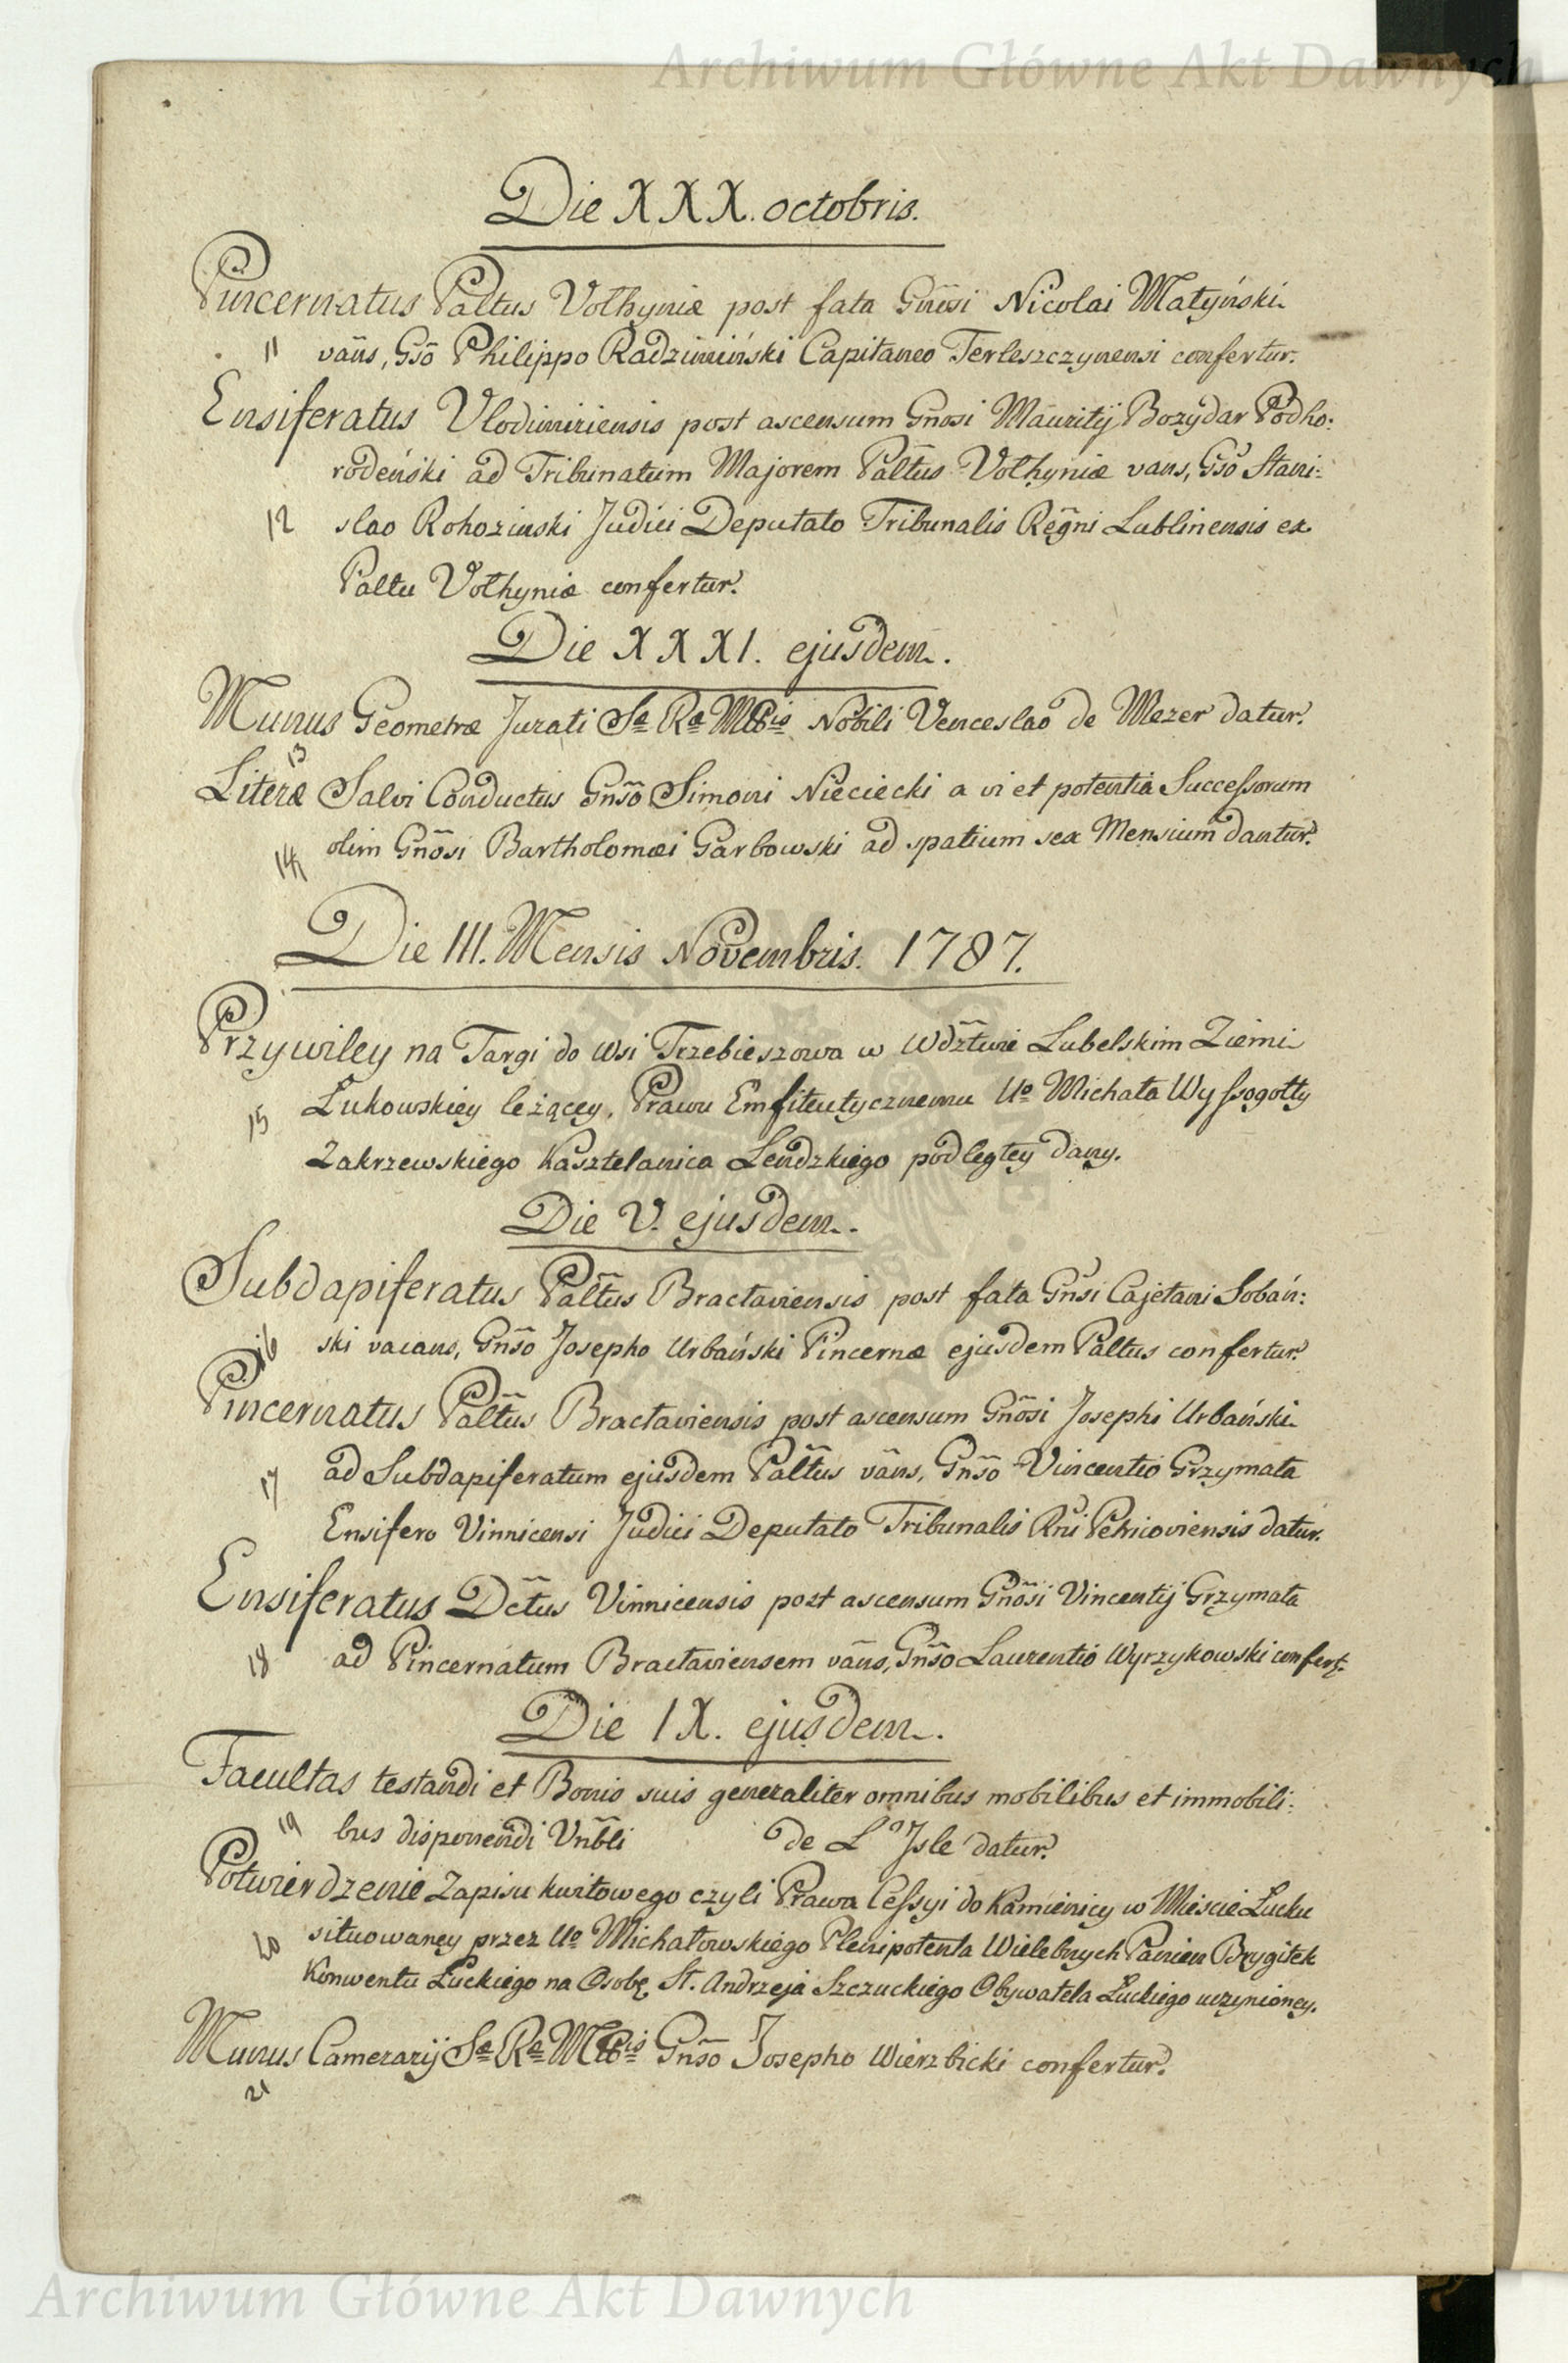 Archiwum Główne Akt Dawnych
Die XXX. octobris.
Pincernatus Paltus Volhyniæ post fata Gnosi Nicolai Małyński
11 vañs, Gsõ Philippo Radzimiński Capitaneo Terleszczynensi confertur.
Ensiferatus Vlodimiriensis post ascensum Gñosi Mauritij Bozydar Podho:
rodeński ad Tribunatum Majorem Paltus Volhyniæ vans, Gsõ Stani:
12 slao Rohozinski Judici Deputato Tribunalis Regñi Lublinensis ex
Paltu Volhyniæ confertur.
Die XXXI. ejusdem.
Munus Geometræ Jurati Sæ Ræ Mttis Nobili Venceslao de Mezer datur.
13
Literæ Salvi Conductus Gnsõ Simoni Nieciecki a vi et potentia Successorum
14 olim Gñosi Bartholomæi Garbowski ad spatium sex Mensium dantur.
Die III. Mensis Novembris. 1787.
Przywiley na Targi do Wsi Trzebieszowa w Wdztwie Lubelskim Ziemi
15 Łukowskiey leżącey, Prawu Emfiteutycznemu Uo Michała Wyssogotty
Zakrzewskiego Kasztelanica Lendzkiego podległey dany.
Die V. ejusdem.
Subdapiferatus Paltus Braclaviensis post fata Gnsi Cajetani Sobań:
16 ski vacans, Gnsõ Josepho Urbański Pincernæ ejusdem Paltus confertur.
Pincernatus Paltus Braclaviensis post ascensum Gñosi Josephi Urbański
17 ad Subdapiferatum ejusdem Paltus vãns, Gnsõ Vincentio Grzymała
Ensifero Vinnicensi Judici Deputato Tribunalis Rni Petricoviensis datur.
Ensiferatus Dctus Vinnicensis post ascensum Gñosi Vincentij Grzymała
18 ad Pincernatum Braclaviensem vãns, Gnsõ Laurentio Wyrzykowski confert.
Die IX. ejusdem.
Facultas testandi et Bonis suis generaliter omnibus mobilibus et immobili:
19 bus disponendi Vnbli de L'Isle datur.
Potwierdzenie Zapisu kwitowego czyli Prawa Cessyi do Kamienicy w Mieście Łucku
20 situowaney przez Uo Michałowskiego Plenipotenta Wielebnych Panien Brygitek
Konwentu Łuckiego na Osobę St. Andrzeja Szczuckiego Obywatela Łuckiego uczynioney.
Munus Camerarij Sæ Ræ Mttis Gnsõ Josepho Wierzbicki confertur.
21
Archiwum Główne Akt Dawnych